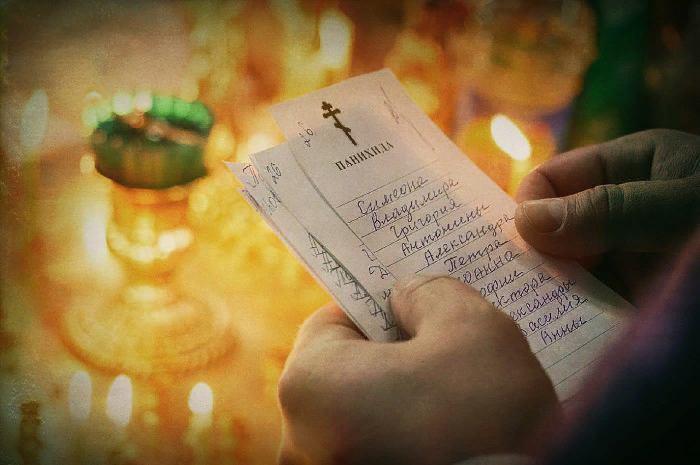 ПАНИХИДА
Симеона
Владимира
Григория
Антонины
Александра
Петра
Иоанна
ктора
лександры
Василія
Анны